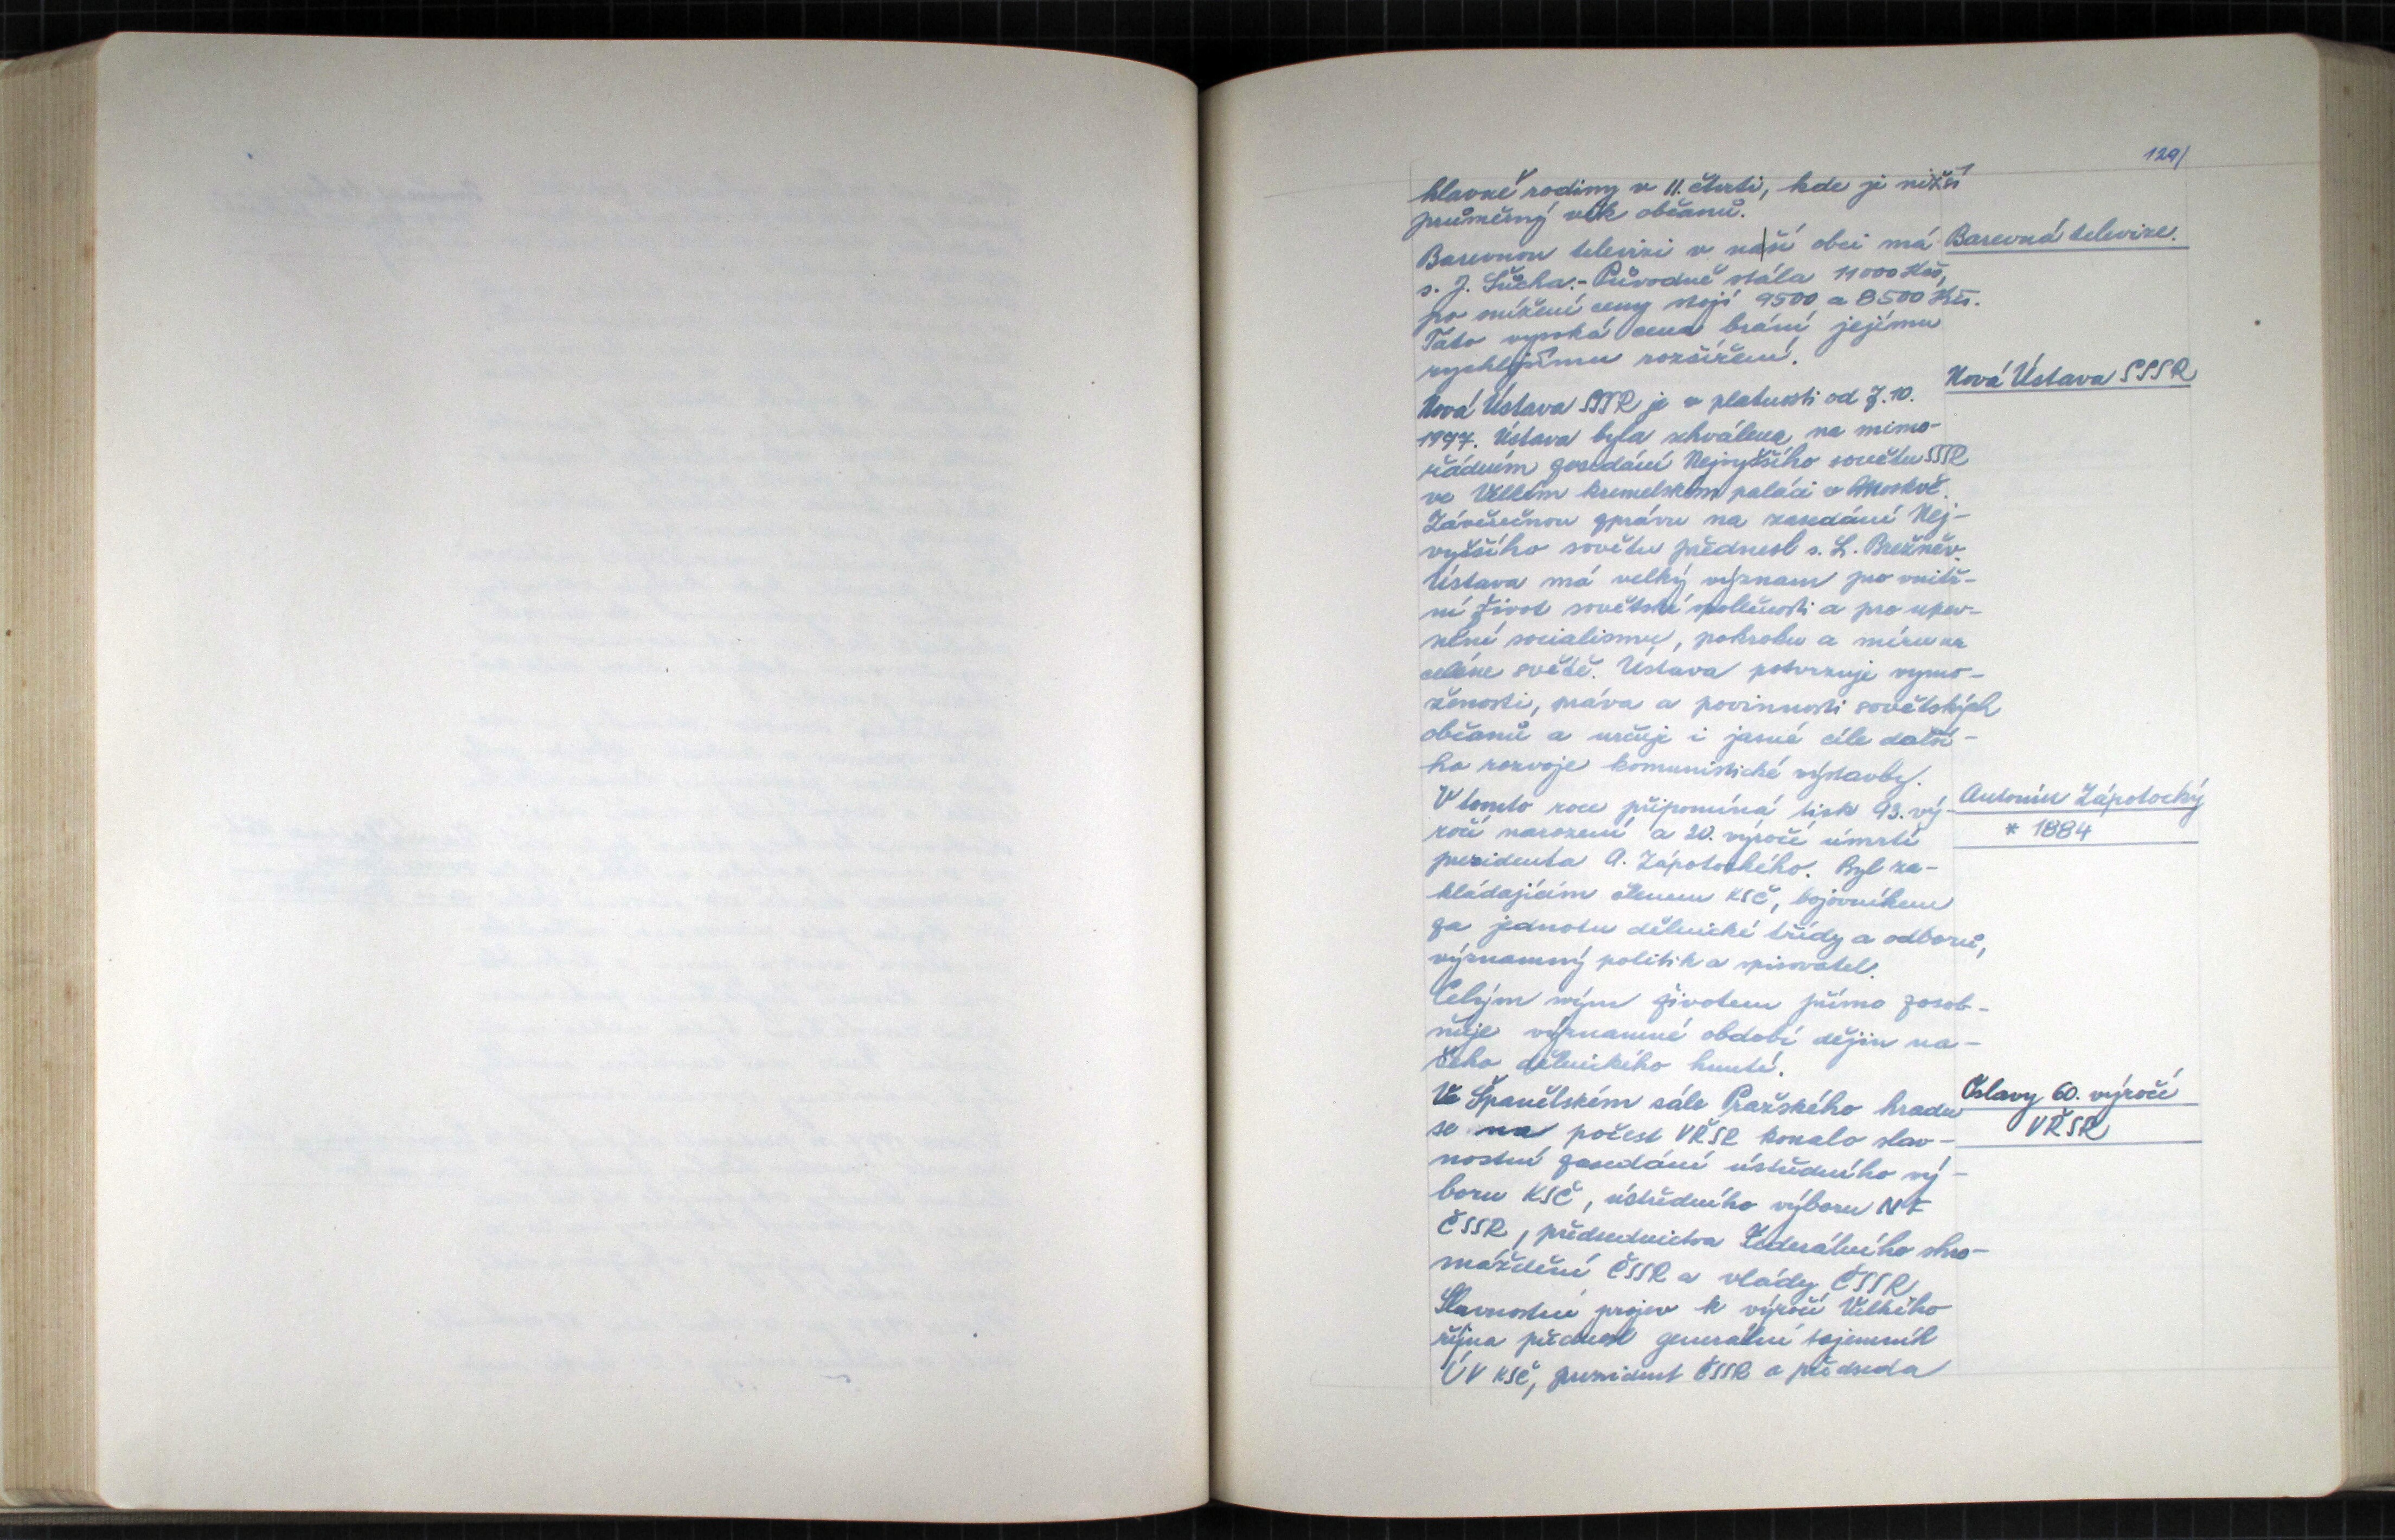 129/
hlavně rodiny v II. čtvrti, kde je nižší
průměrný věk občanů.
Barevnou televizi v naší obci má
Barevná televize.
s. J. Sůcha.- Původně stála 11000 Kčs,
po snížení ceny stojí 9500 a 8500 Kčs.
Tato vysoká cena brání jejímu
rychlejšímu rozšíření.
Nová Ústava SSSR
Nová Ústava SSSR je v platnosti od 7.10.
1977. Ústava byla schválena na mimo-
řádném zasedání Nejvyššího sovětu SSSR
ve Velkém kremelském paláci v Moskvě.
Závěrečnou zprávu na zasedání Nej-
vyššího sovětu přednesl s. L. Brežněv.
Ústava má velký význam pro vnitř-
ní život sovětské společnosti a pro upev-
nění socialismu, pokroku a míru na
celém světě. Ústava potvrzuje vymo-
ženosti, práva a povinnosti sovětských
občanů a určuje i jasné cíle další-
ho rozvoje komunistické výstavby.
V tomto roce připomíná tisk 93. vý-
Antonín Zápotocký
* 1884
ročí narození a 20. výročí úmrtí
prezidenta A. Zápotockého. Byl za-
kládajícím členem KSČ, bojovníkem
za jednotu dělnické třídy a odborů,
významný politik a spisovatel.
Celým svým životem přímo zosob-
ňuje významné období dějin na-
šeho dělnického hnutí.
Ve Španělském sále Pražského hradu
Oslavy 60. výročí
VŘSR
se na počest VŘSR konalo slav-
nostní zasedání ústředního vý-
boru KSČ, ústředního výboru NF
ČSSR, předsednictva Federálního shro-
máždění ČSSR a vlády ČSSR
Slavnostní projev k výročí Velkého
října přednesl generální tajemník
ÚV KSČ, prezident ČSSR a předseda